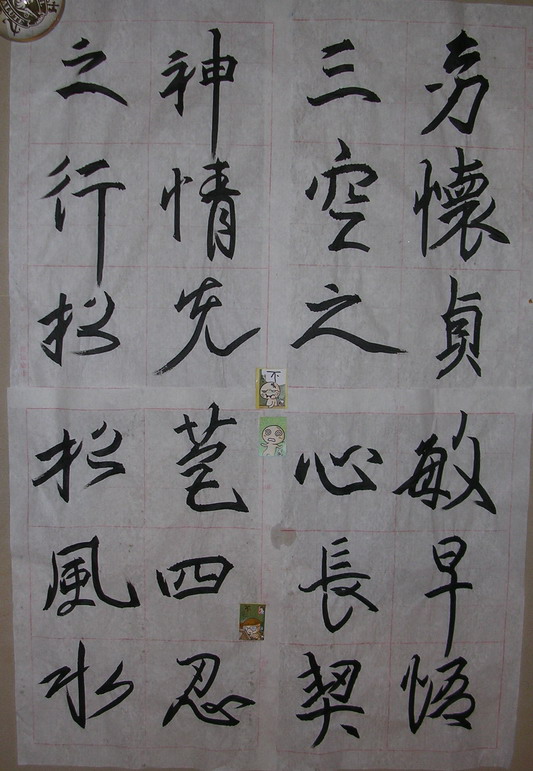 幼懷貞敏早悟
三空之心長契
神情先苞四忍
之行松松風水
不